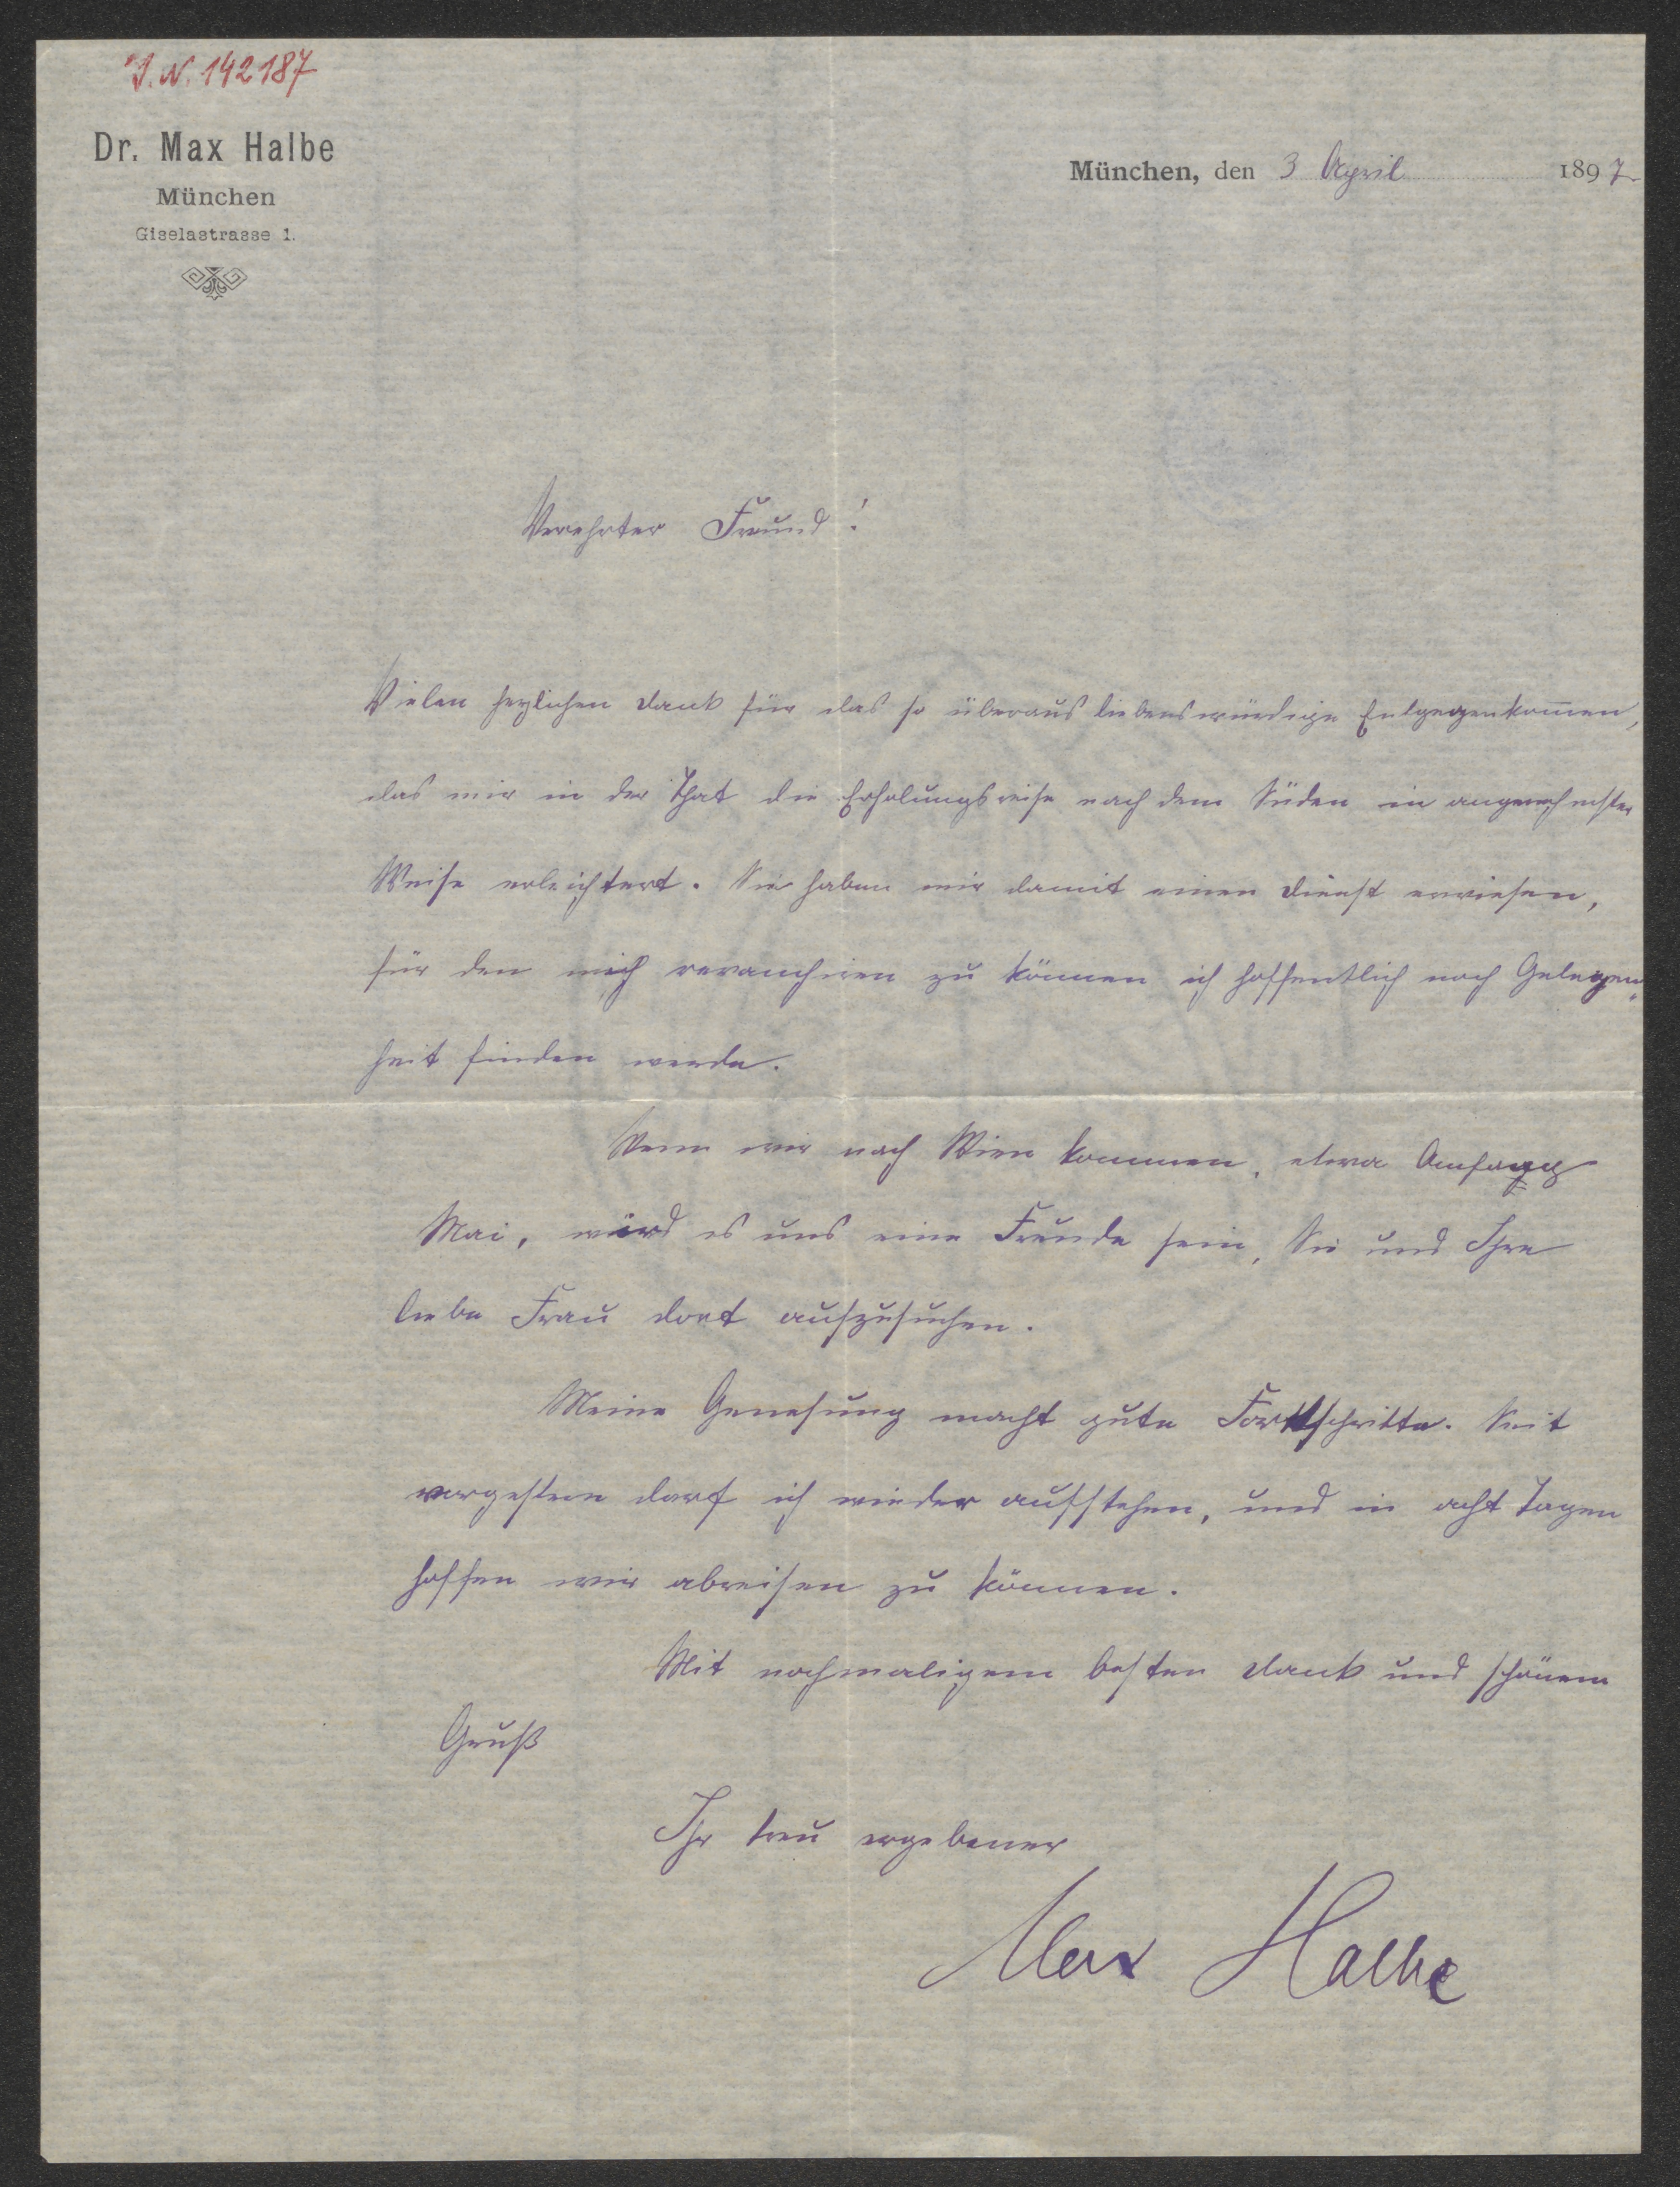 J. N. 142187
Dr. Max Halbe
München
Giselastrasse 1.
München, den 3 April 1897
Verehrter Freund!
Vielen herzlichen Dank für das so überaus liebenswürdige Entgegenkom̄en,
das mir in der That die Erholungsreise nach dem Süden in angenehmster
Weise erleichtert. Sie haben mir damit einen Dienst erwiesen,
für den mich revanchiren zu können ich hoffentlich noch Gelegen-
heit finden werde.
Wenn wir nach Wien kommen, etwa Anfang
Mai, wird es uns eine Freude sein, Sie und Ihre
liebe Frau dort aufzusuchen.
Meine Genesung macht gute Fortschritte. Seit
vorgestern darf ich wieder aufstehen, und in acht Tagen
hoffen wir abreisen zu können.
Mit nochmaligem besten Dank und schönem
Gruß
Ihr treu ergebener
Max Halbe